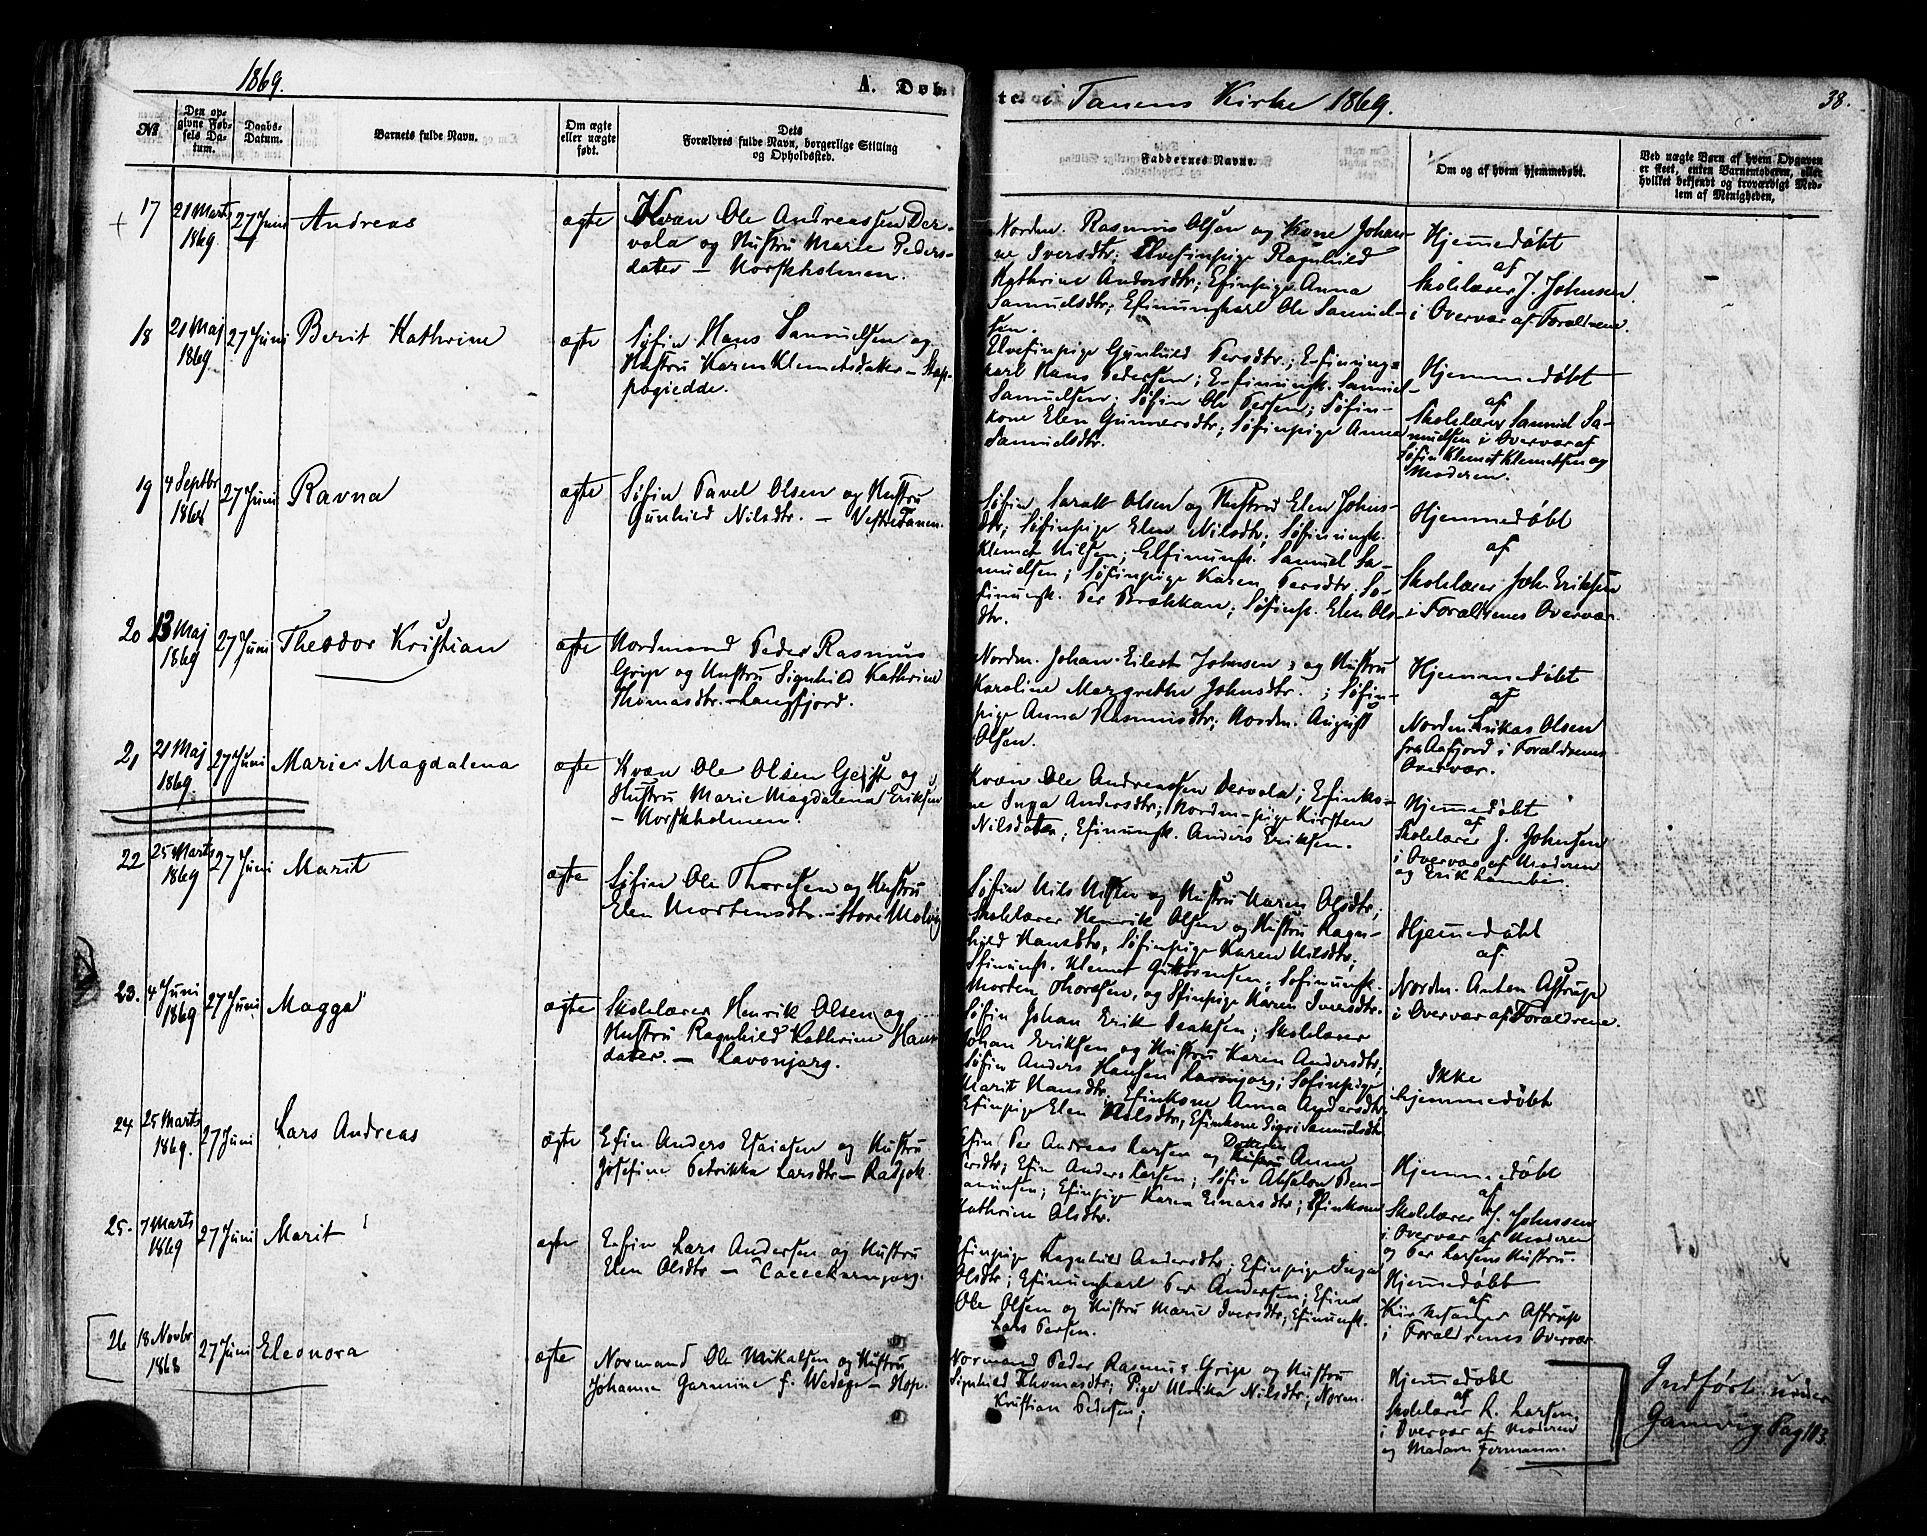 1869.
A. Døbte i Tanens Kirke 1869.
38.
№
Den opgivne Fødsels Datum.
Daabs-Datum.
Barnets fulde Navn.
Om ægte eller uægte født.
Dets Forældres fulde Navn, borgerlige Stilling og Opholdssted.
Faddernes Navne.
Om og af hvem hjemmedøbt.
Ved uægte Børn af hvem Opgaven er skeet, enten Barnemoderen, eller hvilket bekjendt og troværdigt Medlem af Menigheden.
17
21 Marts
1869
27 Juni
Andreas
ægte
Kvæn Ole Andreassen Der-
vola og Hustru Marie Peders-
dater – Norskholmen.
Nordm. Rasmus Olsen og Kone Johan-
ne Iversdtr; Elvefinpige Ragnhild
Kathrine Andersdtr; Efinpige Anna
Samuelsdtr; Efinungkarl Ole Samuel-
sen.
Hjemmedøbt
af
Skolelærer J. Johnsen
i Overvær af Forældrene.
18
21 Maj
1869
27 Juni
Berit Kathrine
ægte
Søfin Hans Samuelsen og
Hustru Karen Klemetsdater – Stap-
pogiedde.
Elvefinpige Gunhild Persdtr; E-finung-
karl Hans Pedersen; E-finungk. Samuel
Samuelsen; Søfin Ole Persen; Søfin-
kone Elen Gunnersdtr; Søfinpige Anna
Samuelsdtr.
Hjemmedøbt
af
Skolelærer Samuel Sa-
muelsen i Overvær af
Søfin Klemet Klemetsen og
Moderen.
19
4 Septbr
1868
27 Juni
Ravna
ægte
Søfin Pavel Olsen og Hustru
Gunhild Nilsdtr. – Vestretanen.
Søfin Sarak Olsen og Hustru Elen Johns-
dtr; Søfinpige Elen Nilsdtr; Søfinungk.
Klemet Nilsen; Elfinungk. Samuel Sa-
muelsen; Søfinpige Karen Persdtr; Sø-
finungk. Per; Søfinp. Elen Ols-
dtr.
Hjemmedøbt
af
Skolelærer Joh. Eriksen
i Forældrenes Overvær.
20
13 Maj
1869
27 Juni
Theodor Kristian
ægte
Nordmand Peder Rasmus
Grip og Hustru Signhild Kathrine
Thomasdtr. – Langfjord.
Nordm. Johan Eilert Johnsen, og Hustru
Karoline Margrethe Johnsdtr.; Søfin-
pige Anna Rasmusdtr; Nordm. August
Olsen.
Hjemmedøbt
af
Nordm. Lukas Olsen
fra i Forældrenes
Overvær.
21
21 Maj
1869
27 Juni
Marie Magdalena
ægte
Kvæn Ole Olsen Geist og
Hustru Marie Magdalena Eriksen
– Norskholmen.
Kvæn Ole Andreassen Dervola; Efinko-
ne Inga Andersdtr; Nordm-pige Kirsten
Nilsdater; Efinungk. Anders Eriksen.
Hjemmedøbt
af
Skolelærer J. Johnsen
i Overvær af Moderen
og Erik
22
25 Marts
1869
27 Juni
Marit
ægte
Søfin Ole Thoresen og Hustru
Elen Mortensdtr. – Store Molvig
Søfin Nils Nilsen og Hustru Maren Olsdtr;
Skolelærer Henrik Olsen og Hustru Ragn-
hild Hansdtr, Søfinpige Karen Nilsdtr;
Sfinungk. Klemet Guttormsen; Søfinungk.
Morten Thoresen, og Sfinpige Karen Iversdtr.
Hjemmedøbt
af
Nordm. Anten Astrup
i Overvær af Forældrene.
23.
4 Juni
1869
27 Juni
Magga
ægte
Skolelærer Henrik Olsen og
Hustru Ragnhild Kathrine Hans
dater. – Lavonjarg.
Søfin Johan Erik Isaksen; Skolelærer
Johan Eriksen og Hustru Karen Andersdtr;
Søfin Anders Hansen Lavonjarg; Søfinpige
Marit Hansdtr; Efinkone Anna Andersdtr
Efinpige Elen Nilsdtr, Efinkone Sigri Samuelsdtr
Ikke
hjemmedøbt
24
25 Marts
1869.
27 Juni
Lars Andreas
ægte
Efin Anders Esaiasen og Hustru
Josefine Petrikke Larsdtr – Radjok.
Efin Per Andreas Larsen og Datteren Anne
Persdtr; Efin Anders Larsen; Søfin Absalon Ben-
aminsen; Efinpige Karen Einarsdtr; Efinkone
Kathrine Olsdtr.
Hjemmedøbt
af
Skolelærer J. Johnsen
i Overvær af Moderen
og Per Larsens Hustru.
25.
7 Marts
1869
27 Juni
Marit
ægte
E-fin Lars Andersen og Hustru
Elen Olsdtr –
Efinpige Ragnhild Andersdtr; Efinpige Inga
Olsdtr; Efinungkarl Per Andersen; Efind
Ole Olsen og Hustru Marie Iversdtr; Efinungk.
Lars Persen.
Hjemmedøbt
af
Kirkesanger Astrup
i Forældrenes Overvær.
26
18 Novbr
1868
27 Juni
Eleonora
ægte
Normand Ole Mikalsen og Hustru
Johanna f. Wedege – Hop.
Normand Peder Rasmus Grip og Hustru
Signhild Thomasdtr; Pige Ulrika Nilsdtr; Norm.
Kristian Pedersen;
Hjemmedøbt
af
Skolelærer R. Larsen
i Overvær af Moderen
og Madam Formann.
Indført under
Gamvig Pag 113.